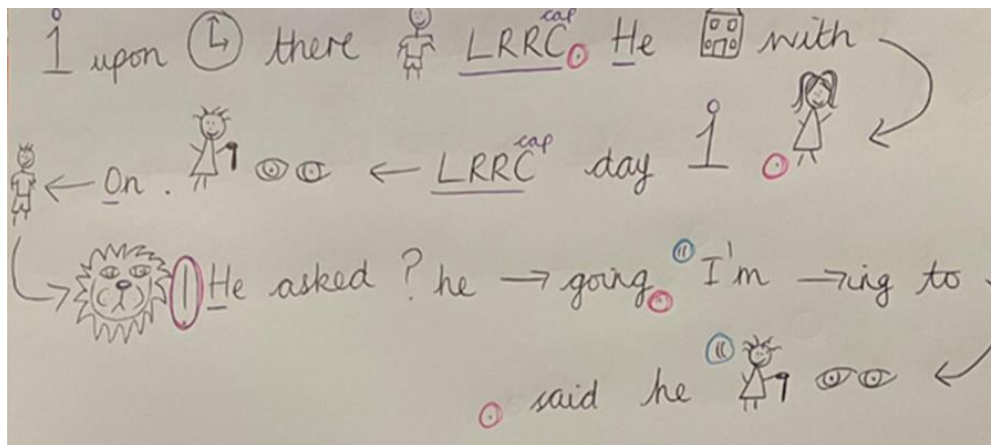 1 upon there LRRC cap. He with
On. LRRC cap day 1 .
! He asked ? he → going. " I'm →ing to
. said he "